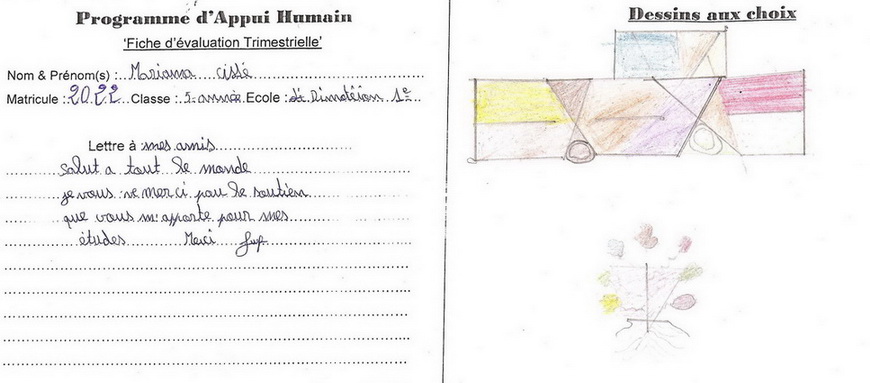 Programme d'Appui Humain
'Fiche d'évaluation Trimestrielle'
Nom & Prénom(s) : Mariama cissé
Matricule : 2022 Classe : 5 année Ecole : 1e
Lettre à mes amis
salut a tout le monde
je vous remerci pour le soutien
que vous m'apporte pour mes
études Merci
Dessins aux choix